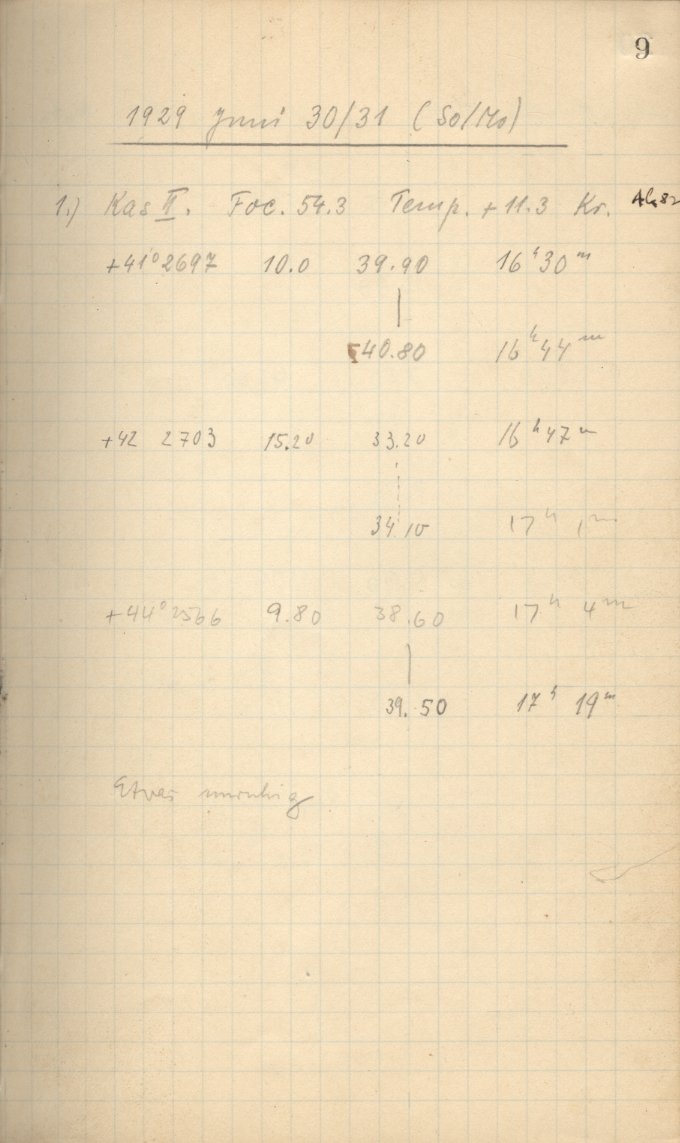 9
1929 Juni 30/31 (So/Mo)
1.) Kas II. Foc. 54.3 Temp. +11.3 Kr.
+41° 2697 10.0 39.90 16h 30m
40.80 16h 44m
+42 2703 15.20 33.20 16h 47m
34.10 17h 1m
+44° 2566 9.80 38.60 17h 4m
39.50 17h 19m
Etwas unruhig